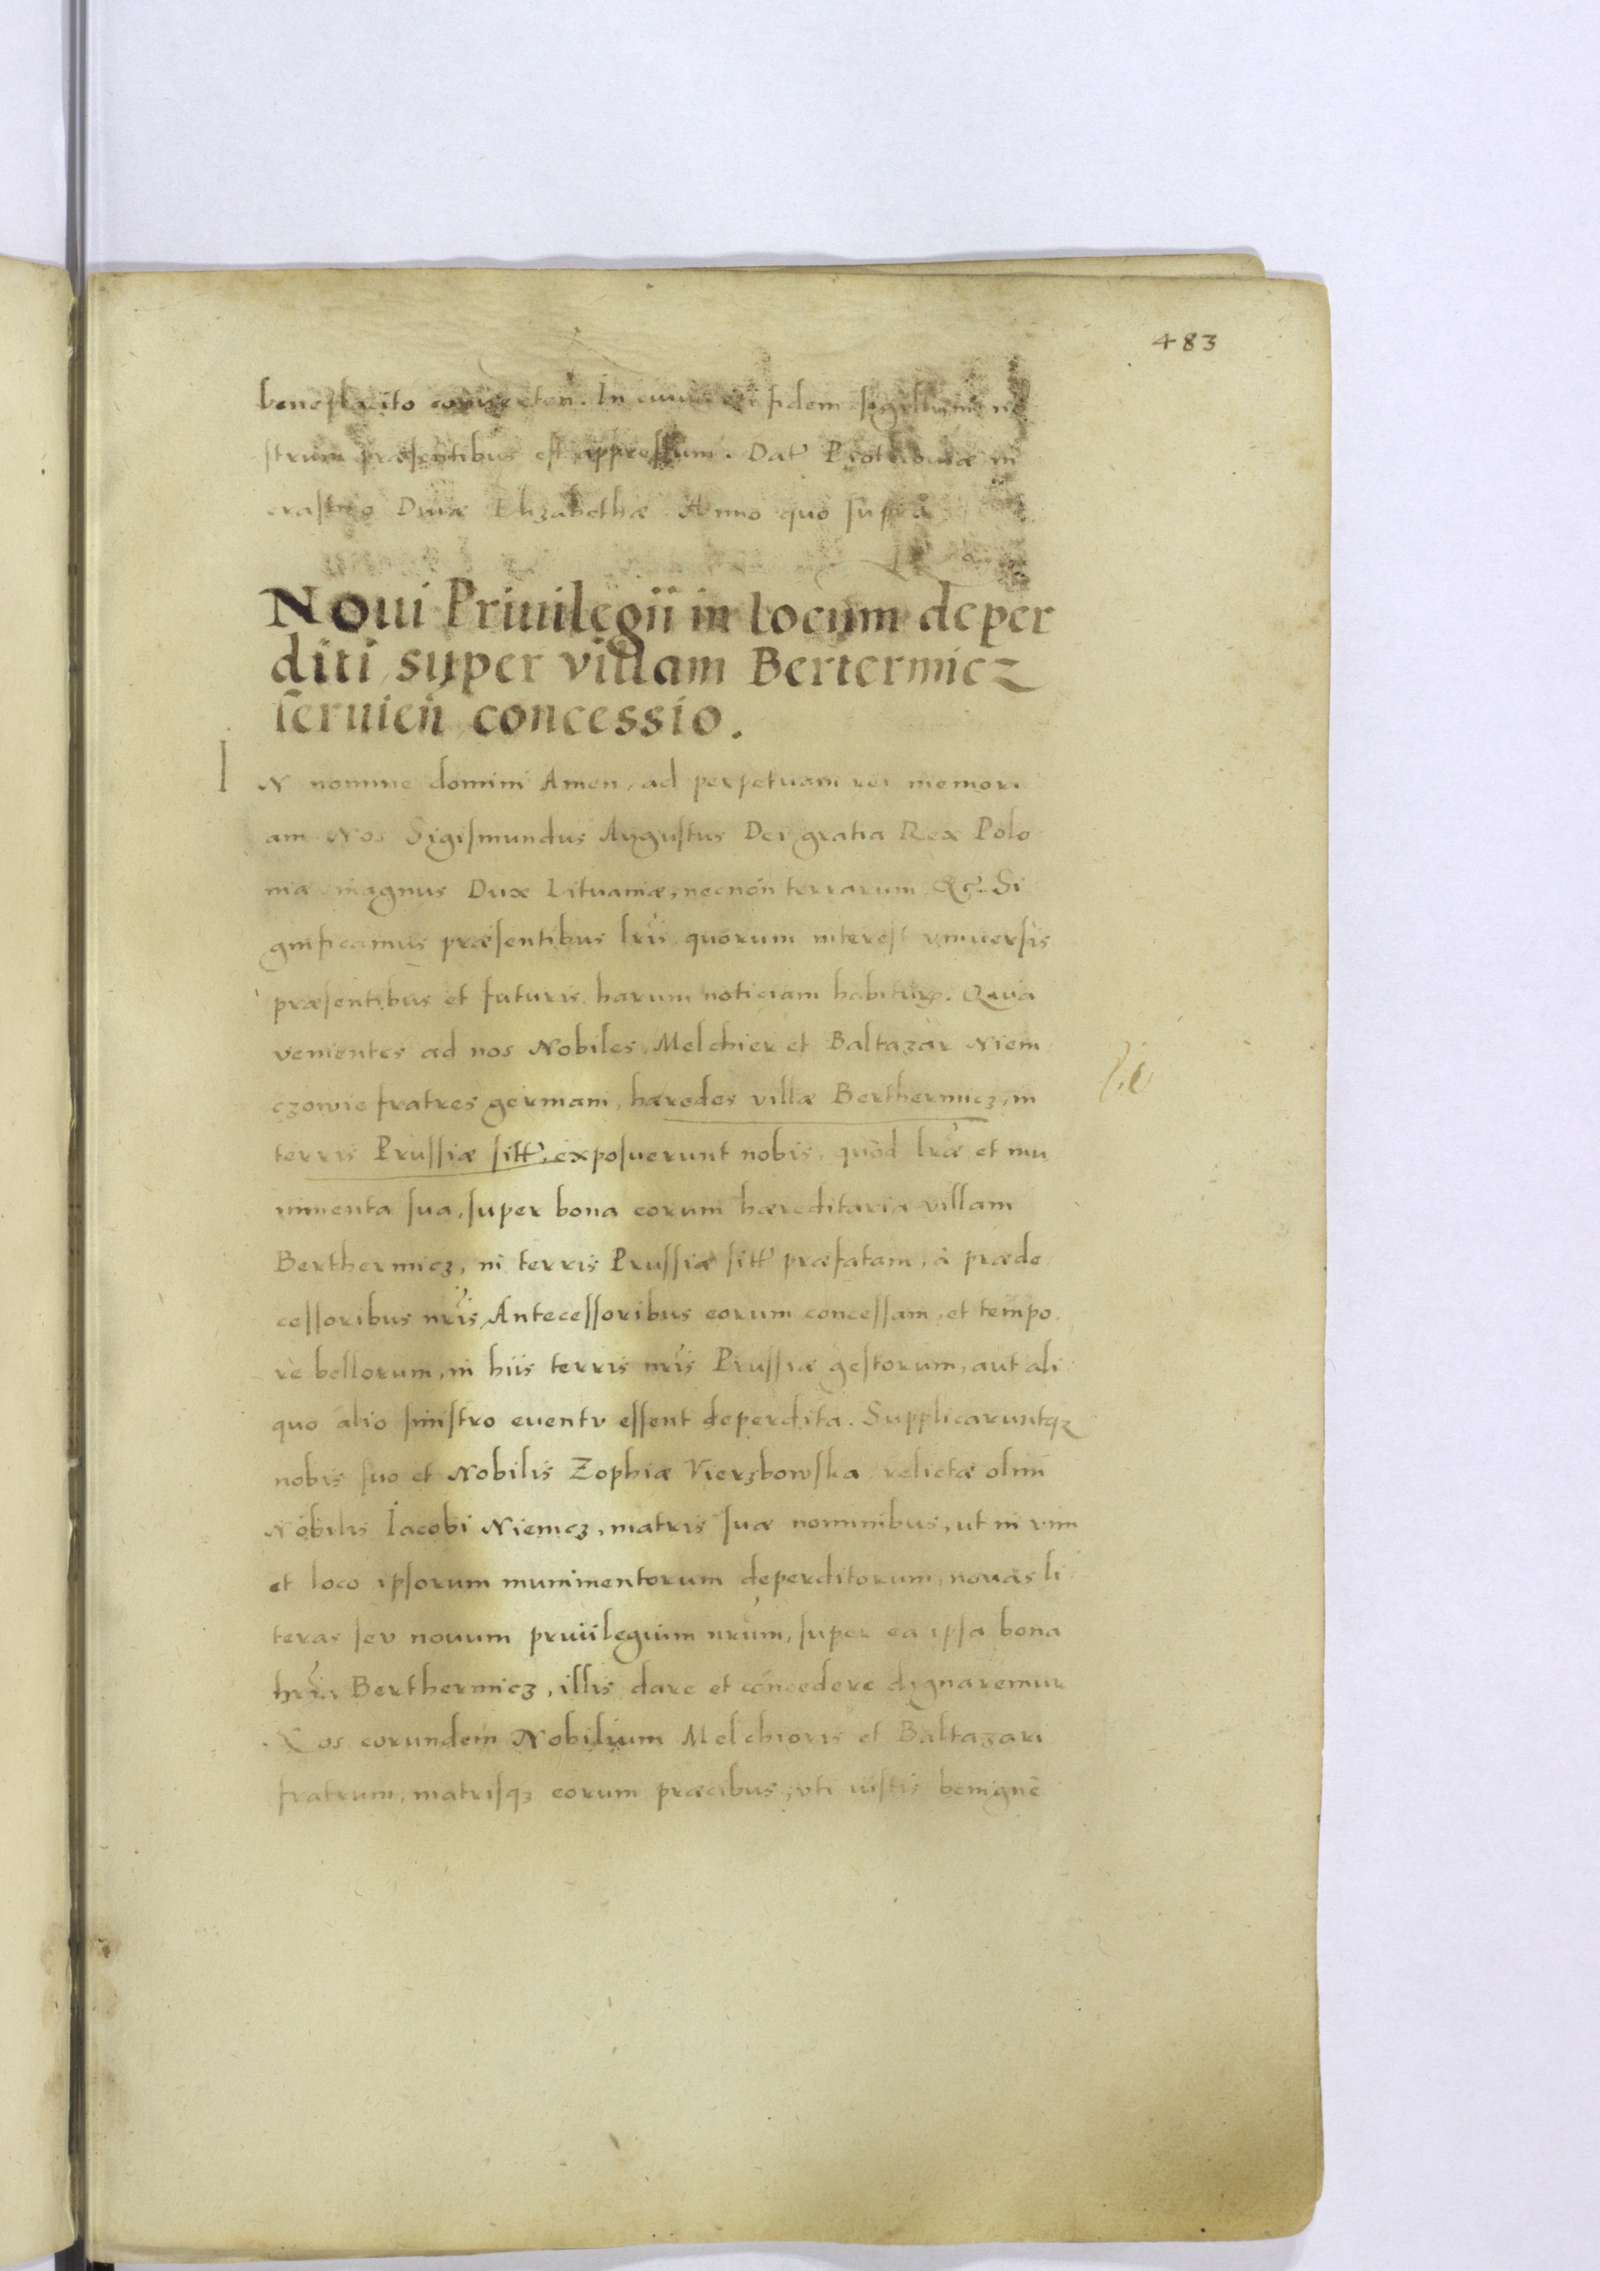 483
beneplacito conuerten. In cuius rei fidem sigillum no
strum præsentibus est appressum. Dat Piotrkowiæ in
crastino Diuæ Elizabethæ Anno quo supra
Noui Priuilegii in locum deper
diti super villam Bertermicz
seruien concessio.
IN nomine domini Amen, ad perpetuam rei memori
am Nos Sigismundus Augustus Dei gratia Rex Polo
niæ magnus Dux Lituaniæ, necnon terrarum &c. Si
gnificamus præsentibus lris quorum interest vniuersis
præsentibus et futuris harum noticiam habitur. Quia
venientes ad nos Nobiles Melchier et Baltazar Niem
czowie fratres germani, hæredes villæ Berthermicz, in
terris Prussiæ sitt, exposuerunt nobis, quod lræ et mu
nimenta sua, super bona eorum hæreditaria villam
Berthermicz, in terris Prussiæ sitt præfatam, à præde
cessoribus nris Antecessoribus eorum concessam, et tempo
re bellorum, in hiis terris nris Prussiæ gestorum, aut ali
quo alio sinistro euentu essent deperdita. Supplicaruntqz
nobis suo et Nobilis Zophiæ Vierzbowska relictæ olim
Nobilis Iacobi Niemcz, matris suæ nominibus, ut in vim
et loco ipsorum munimentorum deperditorum, nouas li
teras seu nouum priuilegium nrum, super ea ipsa bona
hria Berthermicz, illis dare et concedere dignaremur
Nos eorundem Nobilium Melchioris et Baltazari
fratrum, matrisqz eorum præcibus, vti iustis benignè